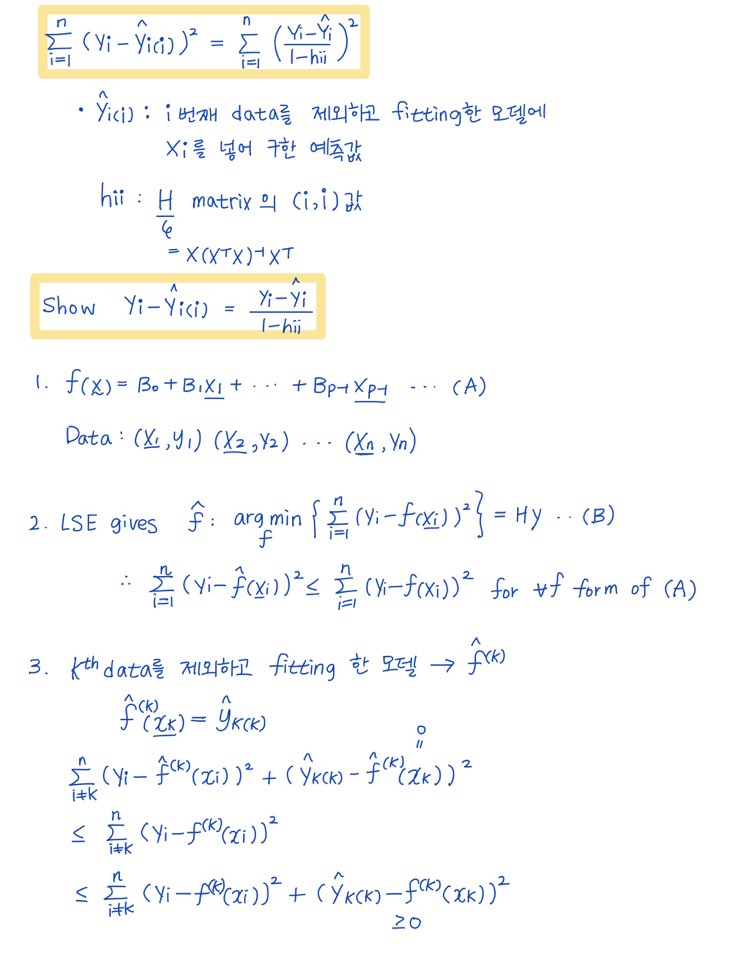 ∑_{i=1}^{n} (Yi − Ŷi(i))² = ∑_{i=1}^{n} ((Yi − Ŷi)/(1−hii))²
• Ŷi(i) : i 번째 data를 제외하고 fitting한 모델에
Xi를 넣어 구한 예측값
hii : H matrix의 (i,i)값
= X(XᵀX)⁻¹Xᵀ
Show Yi − Ŷi(i) = (Yi − Ŷi)/(1−hii)
1. f(x) = B₀ + B₁x₁ + ⋯ + Bp-1 xp-1 ⋯ (A)
Data : (X₁, y₁) (X₂, Y₂) ⋯ (Xn, Yn)
2. LSE gives f̂ : arg min_f {∑_{i=1}^{n} (Yi − f(xi))²} = Hy ‥ (B)
∴ ∑_{i=1}^{n} (Yi − f̂(xi))² ≤ ∑_{i=1}^{n} (Yi − f(Xi))² for ∀f form of (A)
3. Kth data를 제외하고 fitting 한 모델 → f̂^(k)
f̂^(k)(xk) = ŷk(k)
0
=
∑_{i≠k}^{n} (Yi − f̂^(k)(xi))² + (Ŷk(k) − f̂^(k)(xk))²
≤ ∑_{i≠k}^{n} (Yi − f^(k)(xi))²
≤ ∑_{i≠k}^{n} (Yi − f^(k)(xi))² + (Ŷk(k) − f^(k)(xk))²
≥0